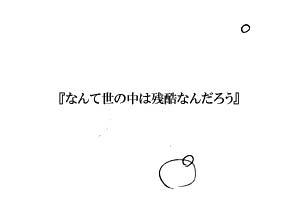 『なんて世の中は残酷なんだろう』